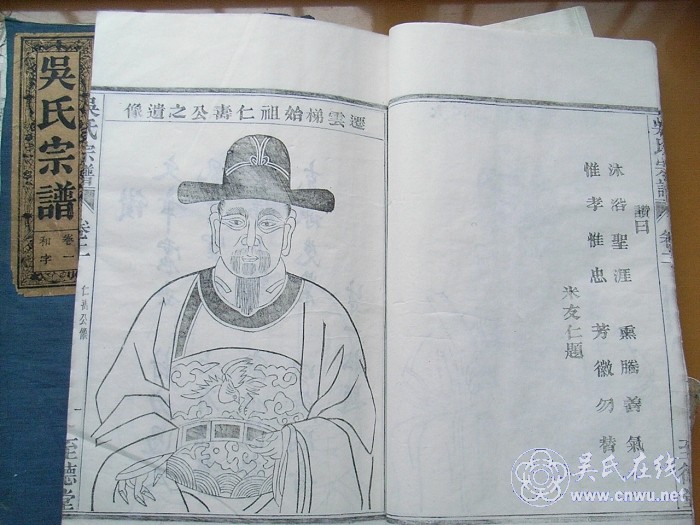 吳氏宗譜
卷一
和字
遷雲梯始祖仁壽公之遺像
吳氏宗譜
卷二
仁壽公像
一
至德堂
吳氏宗譜
卷二
讚曰
沐浴聖涯 熏騰善氣
惟孝惟忠 芳徽勿替
米友仁題
吴氏在线
www.cnwu.net